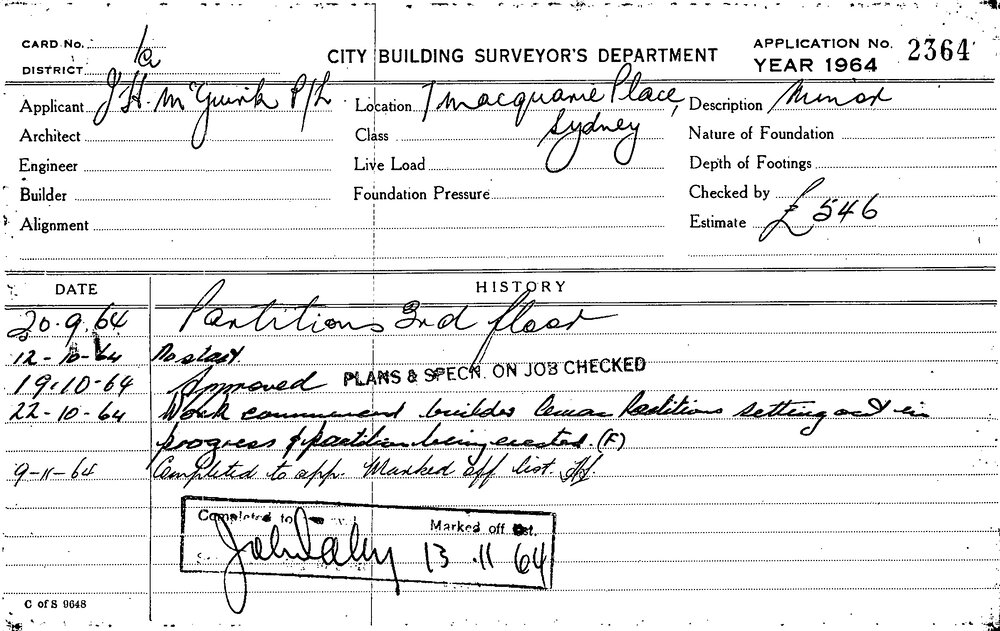 CARD No.
CITY BUILDING SURVEYOR'S DEPARTMENT
APPLICATION No. 2364
DISTRICT 1a
YEAR 1964
Applicant J H. McGuirk P/L Location 7 Macquarie Place, Sydney Description Minor
Architect Class Nature of Foundation
Engineer Live Load Depth of Footings
Builder Foundation Pressure Checked by
Alignment Estimate £546
DATE HISTORY
30.9.64 Partitions 3rd floor
12-10-64 No start.
19.10-64 Approved PLANS & SPECN. ON JOB CHECKED
22-10-64 Work commenced builder Partitions setting out in
progress & partition being erected. (F)
9-11-64 Completed to app. Marked off list.
Completed to Marked off list.
John Daley 13 .11 64
C of S 9648